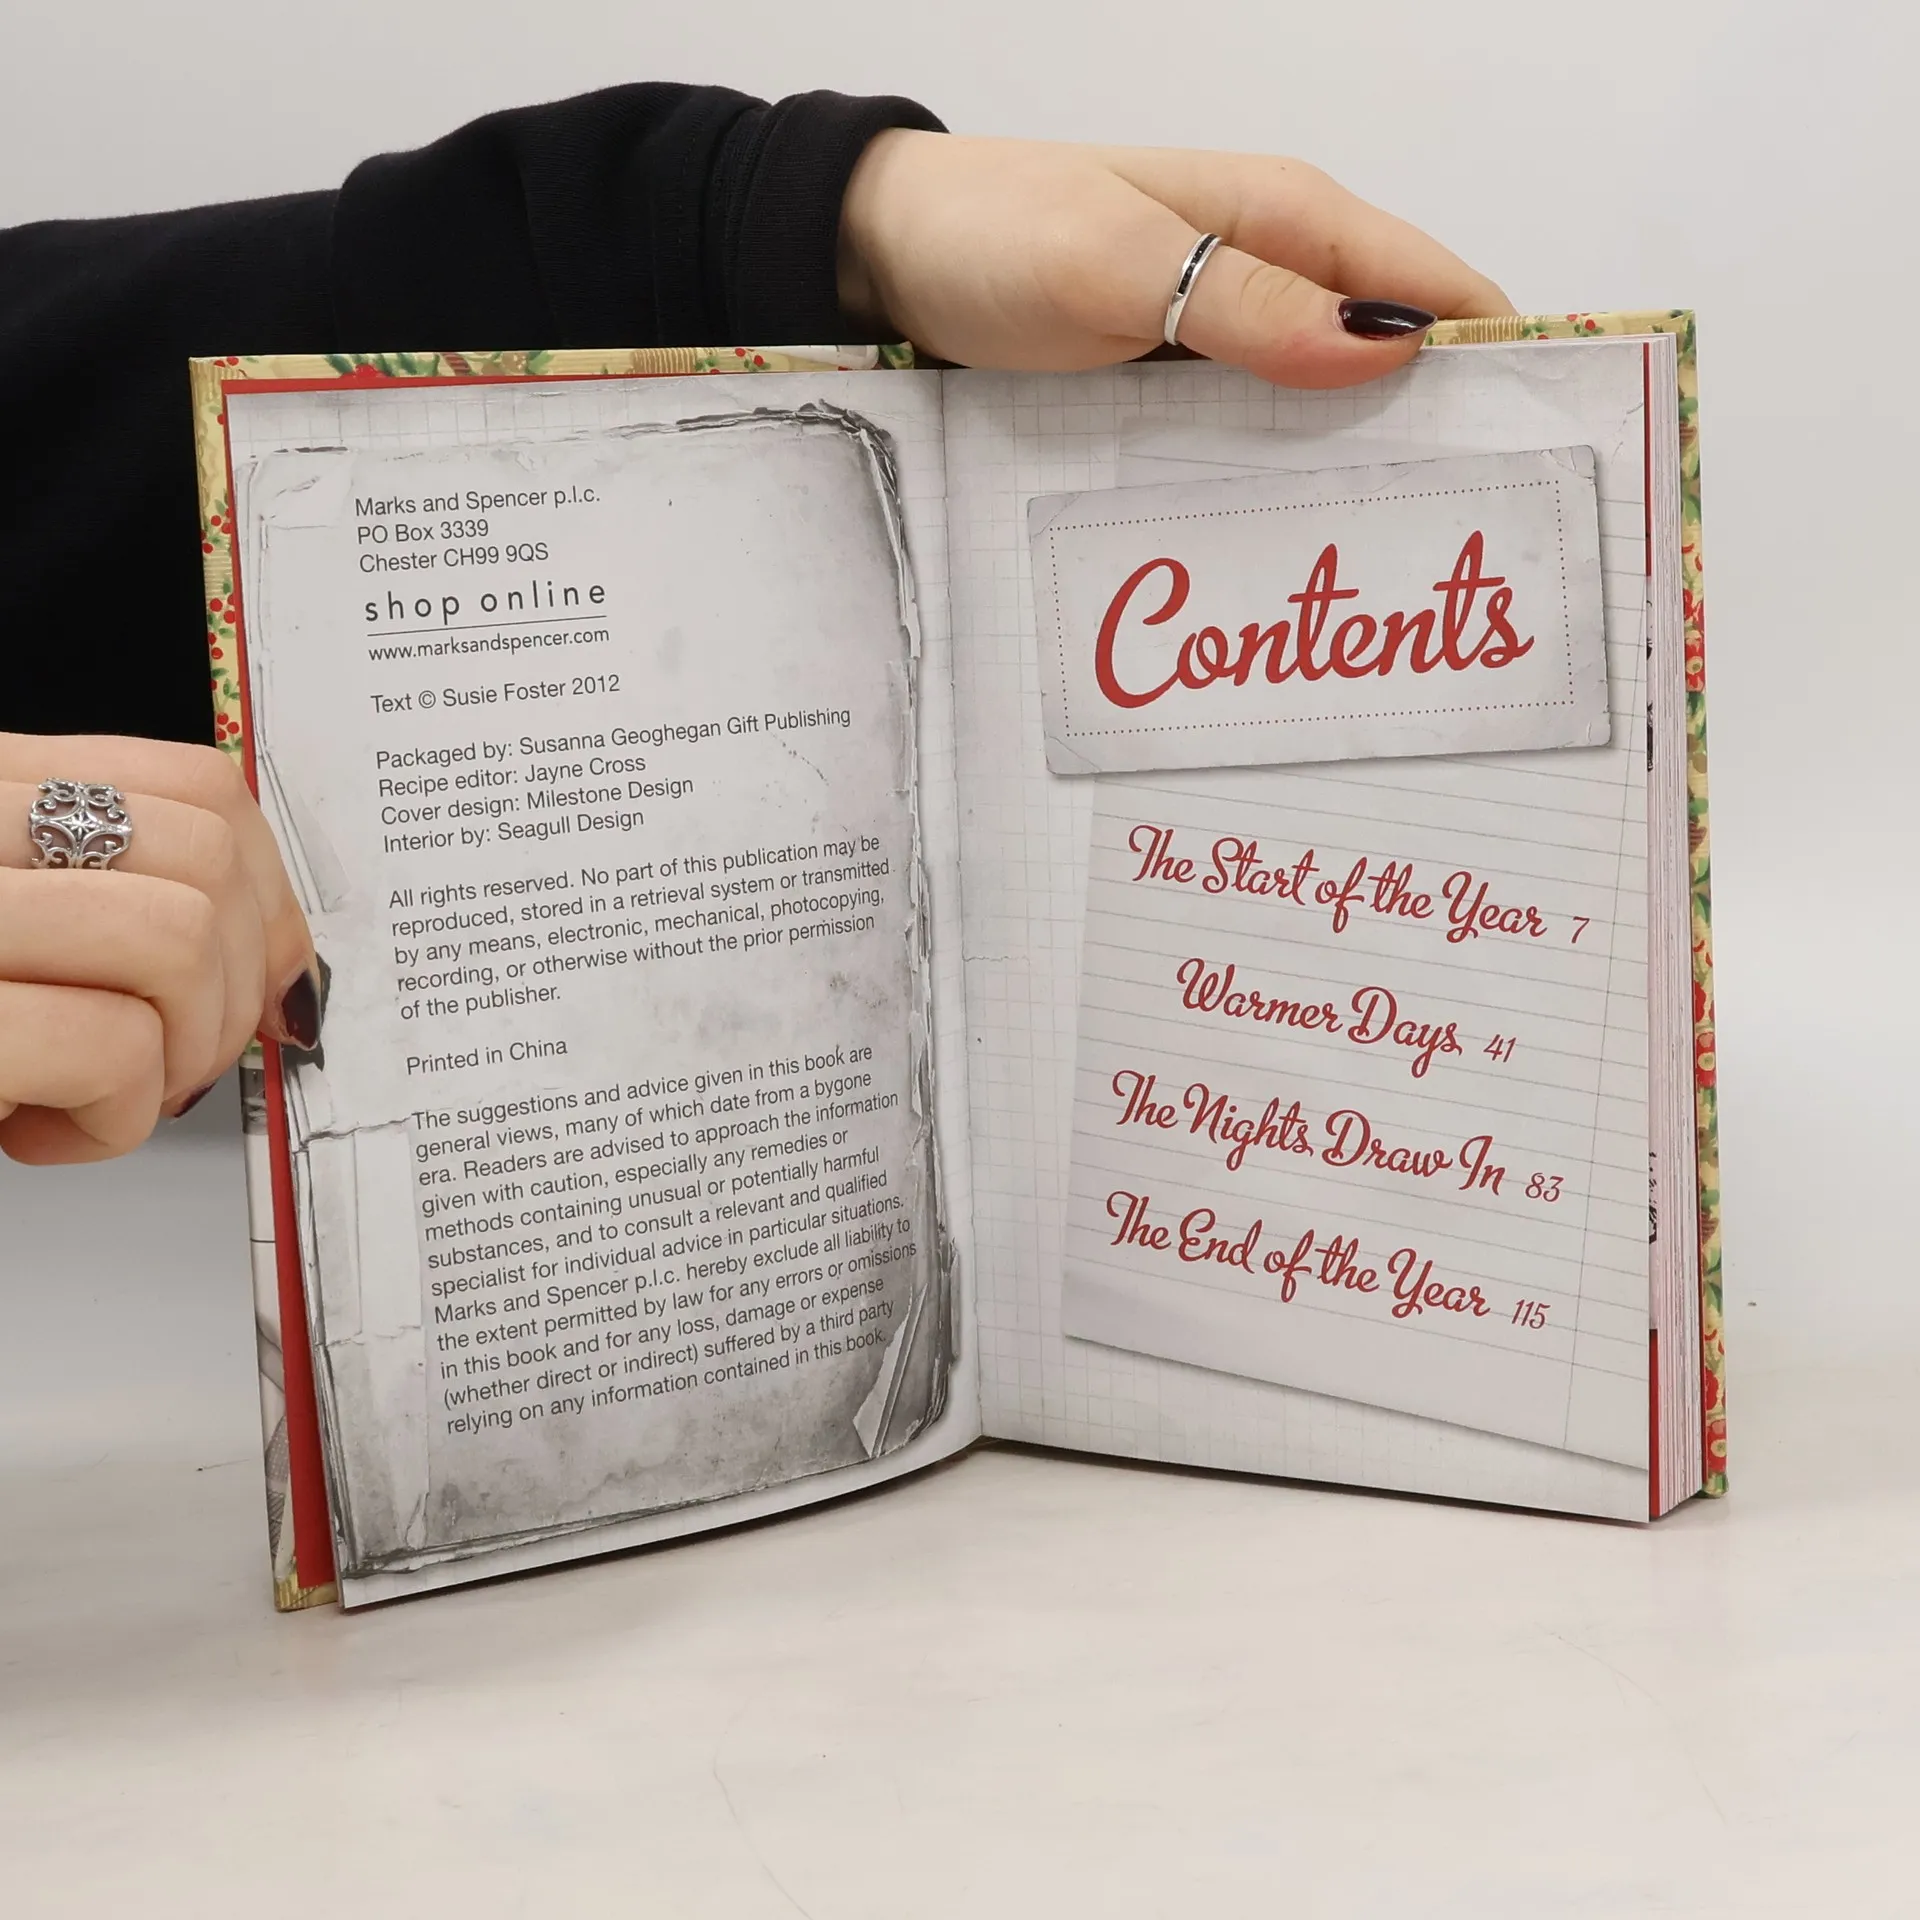 Marks and Spencer p.l.c.
PO Box 3339
Chester CH99 9QS
shop online
www.marksandspencer.com
Text © Susie Foster 2012
Packaged by: Susanna Geoghegan Gift Publishing
Recipe editor: Jayne Cross
Cover design: Milestone Design
Interior by: Seagull Design
All rights reserved. No part of this publication may be
reproduced, stored in a retrieval system or transmitted
by any means, electronic, mechanical, photocopying,
recording, or otherwise without the prior permission
of the publisher.
Printed in China
The suggestions and advice given in this book are
general views, many of which date from a bygone
era. Readers are advised to approach the information
given with caution, especially any remedies or
methods containing unusual or potentially harmful
substances, and to consult a relevant and qualified
specialist for individual advice in particular situations.
Marks and Spencer p.l.c. hereby exclude all liability to
the extent permitted by law for any errors or omissions
in this book and for any loss, damage or expense
(whether direct or indirect) suffered by a third party
relying on any information contained in this book.
Contents
The Start of the Year 7
Warmer Days 41
The Nights Draw In 83
The End of the Year 115